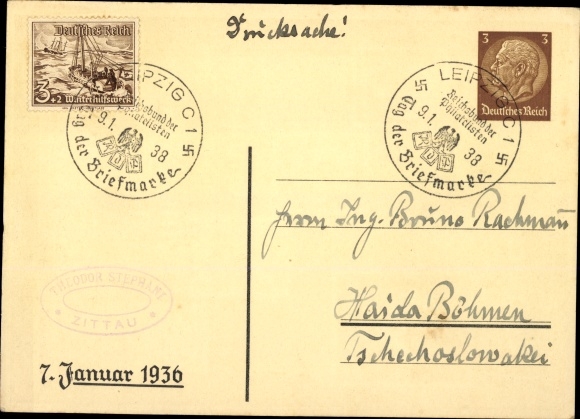 Drucksache!
Deutsches Reich
3+2 Winterhilfswerk
LEIPZIG C1
Reichsbund der
Philatelisten
9.1. 38
Tag der Briefmarke
3 3
Deutsches Reich
LEIPZIG C1
Reichsbund der
Philatelisten
9.1. 38
Tag der Briefmarke
Herrn Ing. Bruno Rachmann
Haida Böhmen
Tschechoslowakei
THEODOR STEPHANI
ZITTAU
7. Januar 1936